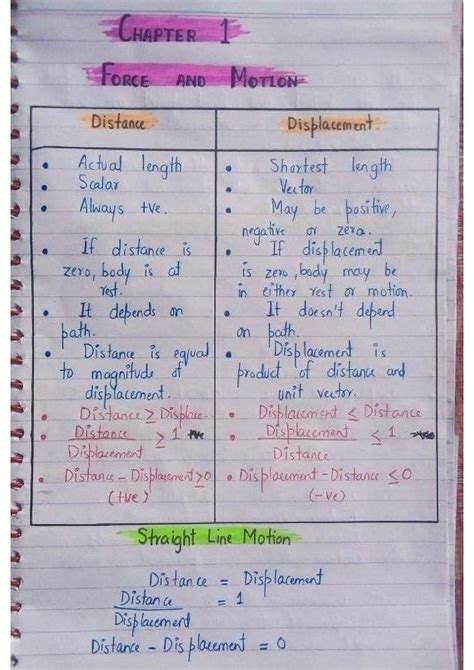 CHAPTER 1
FORCE AND MOTION
Distance
• Actual length
• Scalar
• Always +ve.
• If distance is
zero, body is at
rest.
• It depends on
path.
• Distance is equal
to magnitude of
displacement.
• Distance ≥ Displace.
• Distance/Displacement ≥ 1
• Distance - Displacement ≥ 0
(+ve)
Displacement.
• Shortest length
• Vector
• May be positive,
negative or zero.
• If displacement
is zero, body may be
in either rest or motion.
• It doesn't depend
on path.
• Displacement is
product of distance and
unit vector.
• Displacement ≤ Distance
• Displacement/Distance ≤ 1
• Displacement - Distance ≤ 0
(-ve)
Straight Line Motion
Distance = Displacement
Distance/Displacement = 1
Distance - Displacement = 0